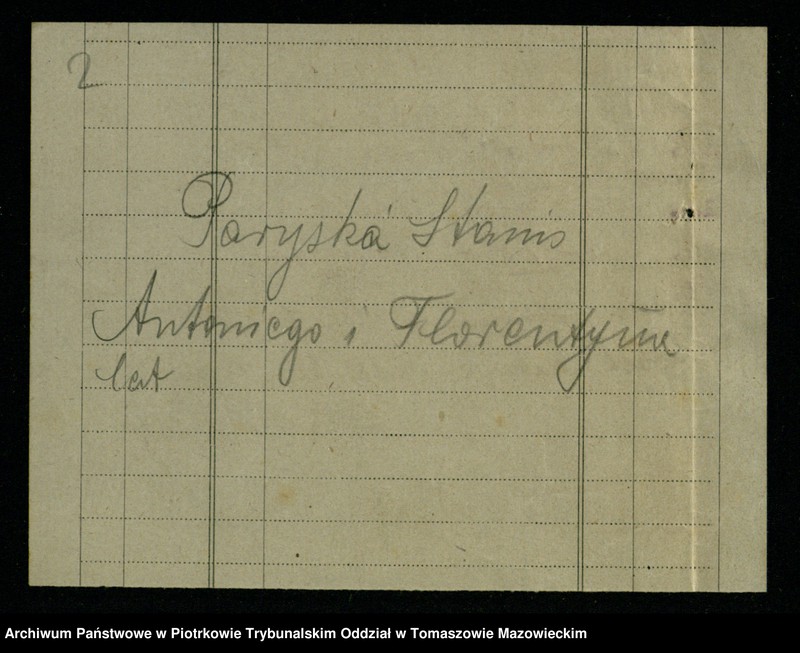 2
Paryska Stanis
Antoniego i Florentyna
lat
Archiwum Państwowe w Piotrkowie Trybunalskim Oddział w Tomaszowie Mazowieckim